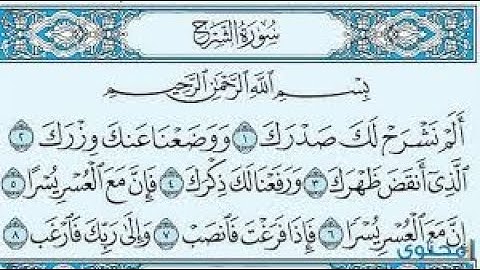 سُورَةُ الشَّرْحِ
بِسْمِ اللَّهِ الرَّحْمَٰنِ الرَّحِيمِ
أَلَمْ نَشْرَحْ لَكَ صَدْرَكَ ١ وَوَضَعْنَا عَنكَ وِزْرَكَ ٢
الَّذِي أَنقَضَ ظَهْرَكَ ٣ وَرَفَعْنَا لَكَ ذِكْرَكَ ٤ فَإِنَّ مَعَ الْعُسْرِ يُسْرًا ٥
إِنَّ مَعَ الْعُسْرِ يُسْرًا ٦ فَإِذَا فَرَغْتَ فَانصَبْ ٧ وَإِلَىٰ رَبِّكَ فَارْغَب ٨
محتوى